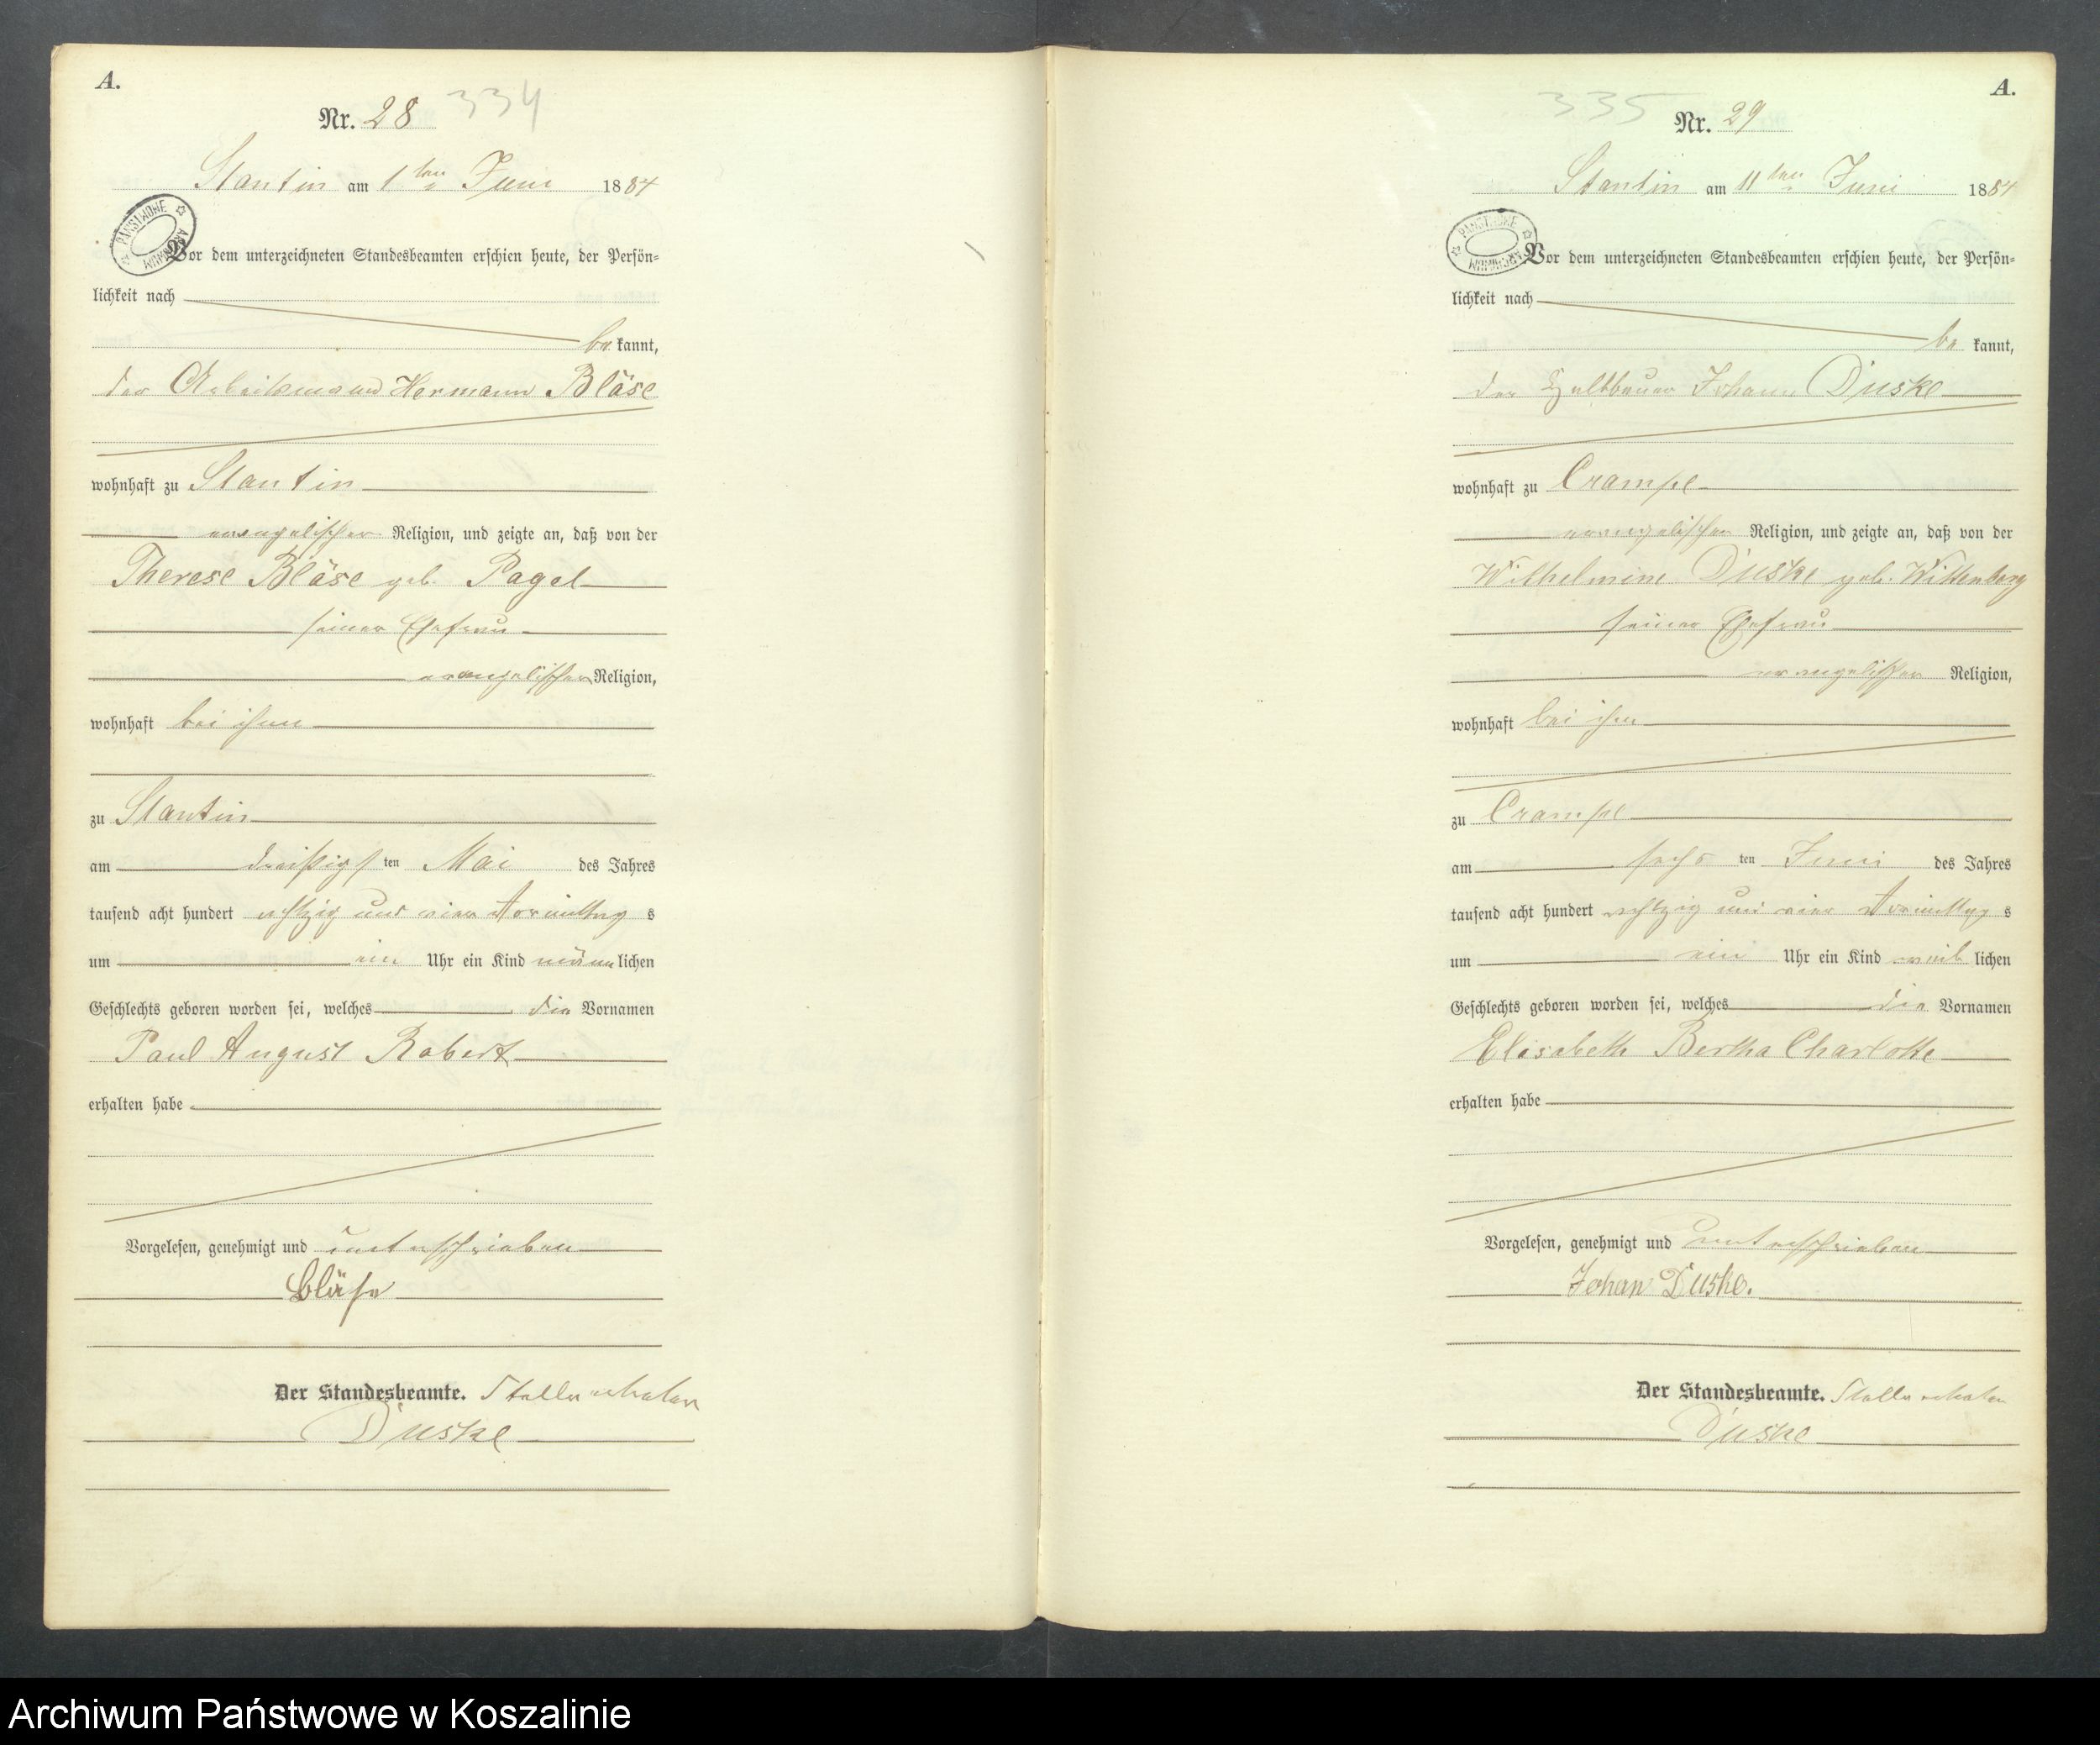 A.
Nr. 28 334
Stantin am 1ten Juni 1884
Vor dem unterzeichneten Standesbeamten erschien heute, der Persön-
lichkeit nach
be kannt,
der Arbeitsmann Hermann Bläse
wohnhaft zu Stantin
evangelischer Religion, und zeigte an, daß von der
Therese Bläse geb. Pagel
seiner Ehefrau
evangelischer Religion,
wohnhaft bei ihm
zu Stantin
am dreißigsten Mai des Jahres
tausend acht hundert achtzig und vier Vormittag s
um ein Uhr ein Kind männlichen
Geschlechts geboren worden sei, welches die Vornamen
Paul August Robert
erhalten habe
Vorgelesen, genehmigt und unterschrieben
Bläse
Der Standesbeamte. Stellvertreter
Duske
PAŃSTWOWE ARCHIWUM
A.
335 Nr. 29
Stantin am 11ten Juni 1884
Vor dem unterzeichneten Standesbeamten erschien heute, der Persön-
lichkeit nach
be kannt,
der Halbbauer Johann Duske
wohnhaft zu Crampe
evangelischer Religion, und zeigte an, daß von der
Wilhelmine Duske geb. Wittenberg
seiner Ehefrau
evangelischer Religion,
wohnhaft bei ihm
zu Crampe
am sechs ten Juni des Jahres
tausend acht hundert achtzig und vier Vormittag s
um ein Uhr ein Kind weib lichen
Geschlechts geboren worden sei, welches die Vornamen
Elisabeth Bertha Charlotte
erhalten habe
Vorgelesen, genehmigt und unterschrieben
Johan Duske.
Der Standesbeamte. Stellvertreter
Duske
PAŃSTWOWE ARCHIWUM
Archiwum Państwowe w Koszalinie